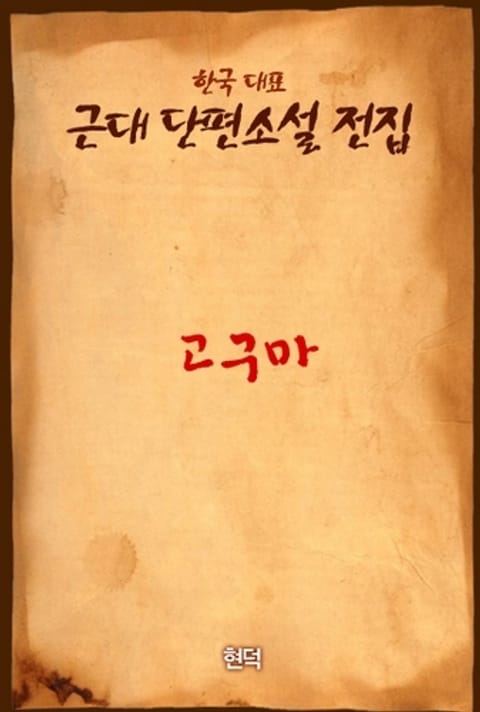 한국 대표
근대 단편소설 전집
고구마
현덕